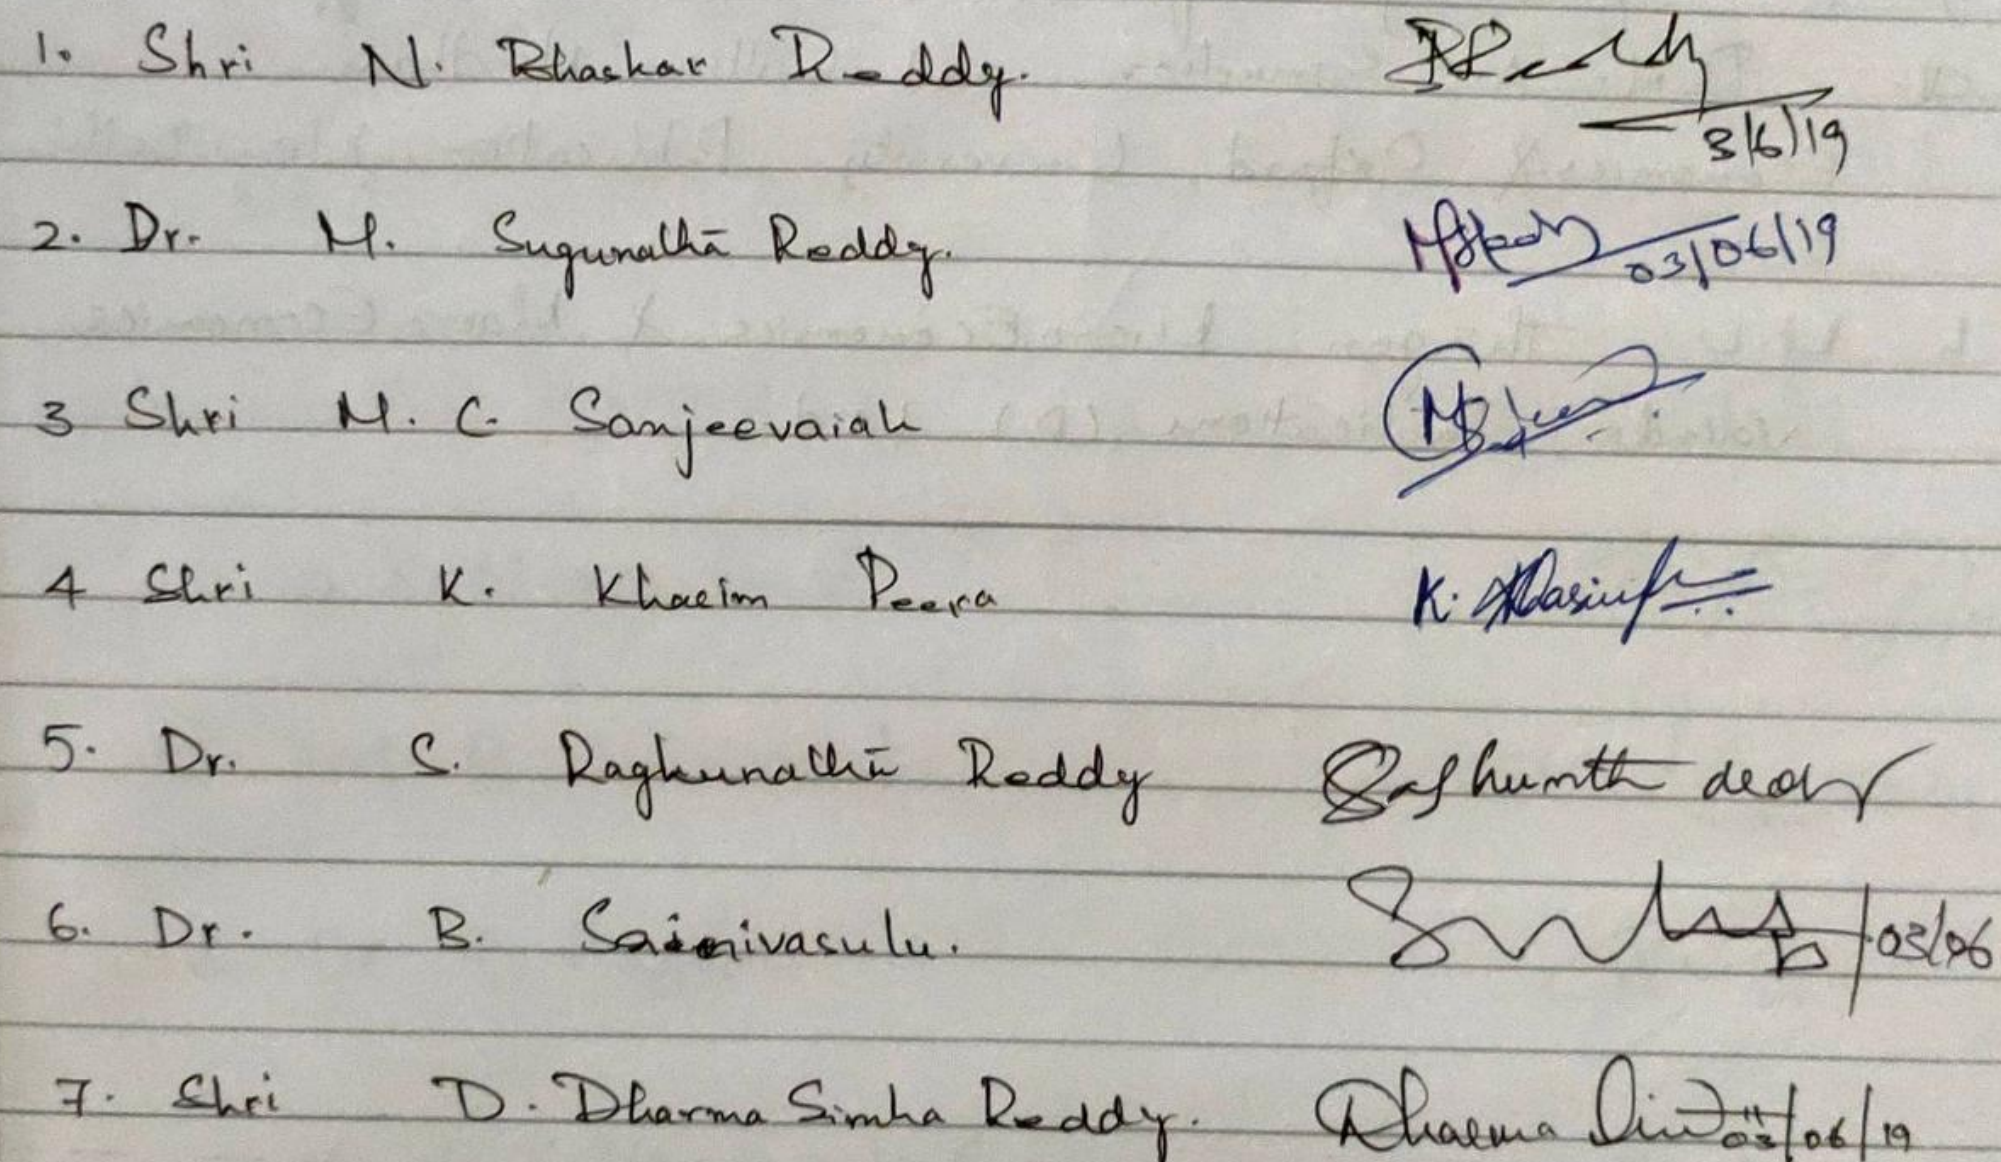 1. Shri N. Bhaskar Reddy. BReddy
3/6/19
2. Dr. M. Sugunatha Reddy. MSReddy 03/06/19
3 Shri M. C. Sanjeevaiah
4 Shri K. Khasim Peera K. Khasim
5. Dr. S. Raghunatha Reddy
6. Dr. B. Sainivasulu. 03/06
7. Shri D. Dharma Simha Reddy. Dharma 03/06/19